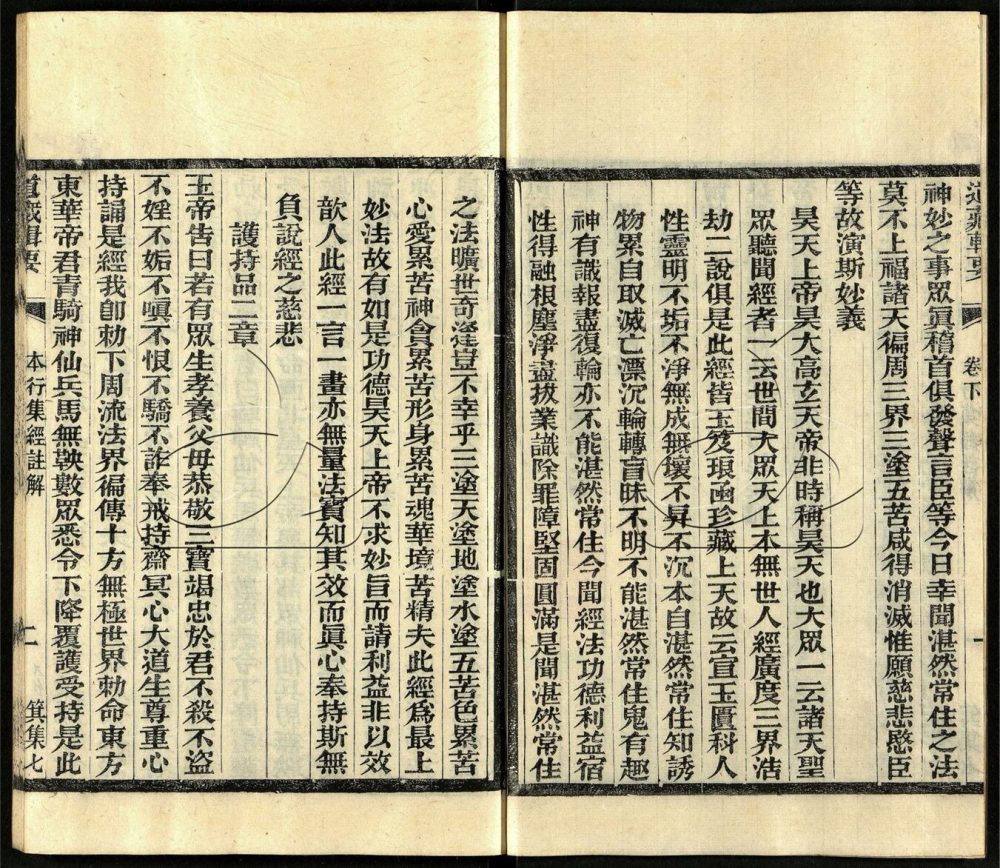 道藏輯要
卷下
一
神妙之事眾眞稽首俱發聲言臣等今日幸聞湛然常住之法
莫不上福諸天徧周三界三塗五苦咸得消滅惟願慈悲愍臣
等故演斯妙義
昊天上帝昊大高玄天帝非時稱昊天也大眾一云諸天聖
眾聽聞經者一云世間大眾天上本無世人經廣度三界浩
劫二說俱是此經皆玉笈琅函珍藏上天故云宣玉匱科人
性靈明不垢不淨無成無壞不昇不沉本自湛然常住知誘
物累自取滅亡漂沉輪轉盲昧不明不能湛然常住鬼有趣
神有識報盡復輪亦不能湛然常住今聞經法功德利益宿
性得融根塵淨盡拔業識除罪障堅固圓滿是聞湛然常住
之法曠世奇逢豈不幸乎三塗天塗地塗水塗五苦色累苦
心愛累苦神貪累苦形身累苦魂華境苦精夫此經爲最上
妙法故有如是功德昊天上帝不求妙旨而請利益非以效
歆人此經一言一畫亦無量法寳知其效而眞心奉持斯無
負說經之慈悲
護持品二章
玉帝告曰若有眾生孝養父毋恭敬三寶竭忠於君不殺不盜
不婬不妬不嗔不恨不驕不詐奉戒持齋冥心大道生尊重心
持誦是經我卽勅下周流法界徧傳十方無極世界勅命東方
東華帝君青騎神仙兵馬無鞅數眾悉令下降覆護受持是此
道藏輯要
本行集經註解
二
箕集七